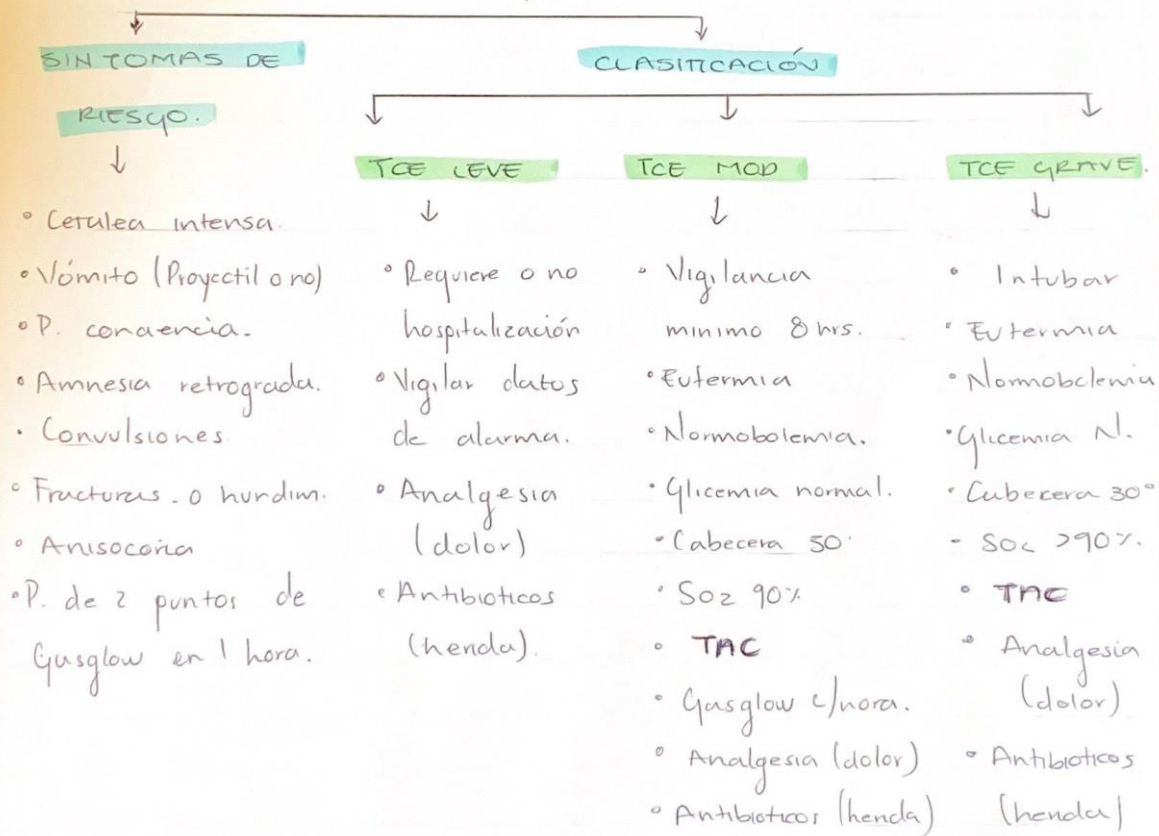 SINTOMAS DE
RIESGO.
• Cefalea intensa.
• Vómito (Proyectil o no)
• P. conciencia.
• Amnesia retrograda.
• Convulsiones
• Fracturas o hundim.
• Anisocoria
• P. de 2 puntos de
Gasglow en 1 hora.
CLASIFICACIÓN
TCE LEVE
• Requiere o no
hospitalización
• Vigilar datos
de alarma.
• Analgesia
(dolor)
• Antibioticos
(herida).
TCE MOD
• Vigilancia
minimo 8 hrs.
• Eutermia
• Normobolemia.
• Glicemia normal.
• Cabecera 30°
• SO2 90%
• TAC
• Gasglow c/hora.
• Analgesia (dolor)
• Antibioticos (herida)
TCE GRAVE.
• Intubar
• Eutermia
• Normobolemia
• Glicemia N.
• Cabecera 30°
- SO2 >90%.
• TAC
• Analgesia
(dolor)
• Antibioticos
(herida)